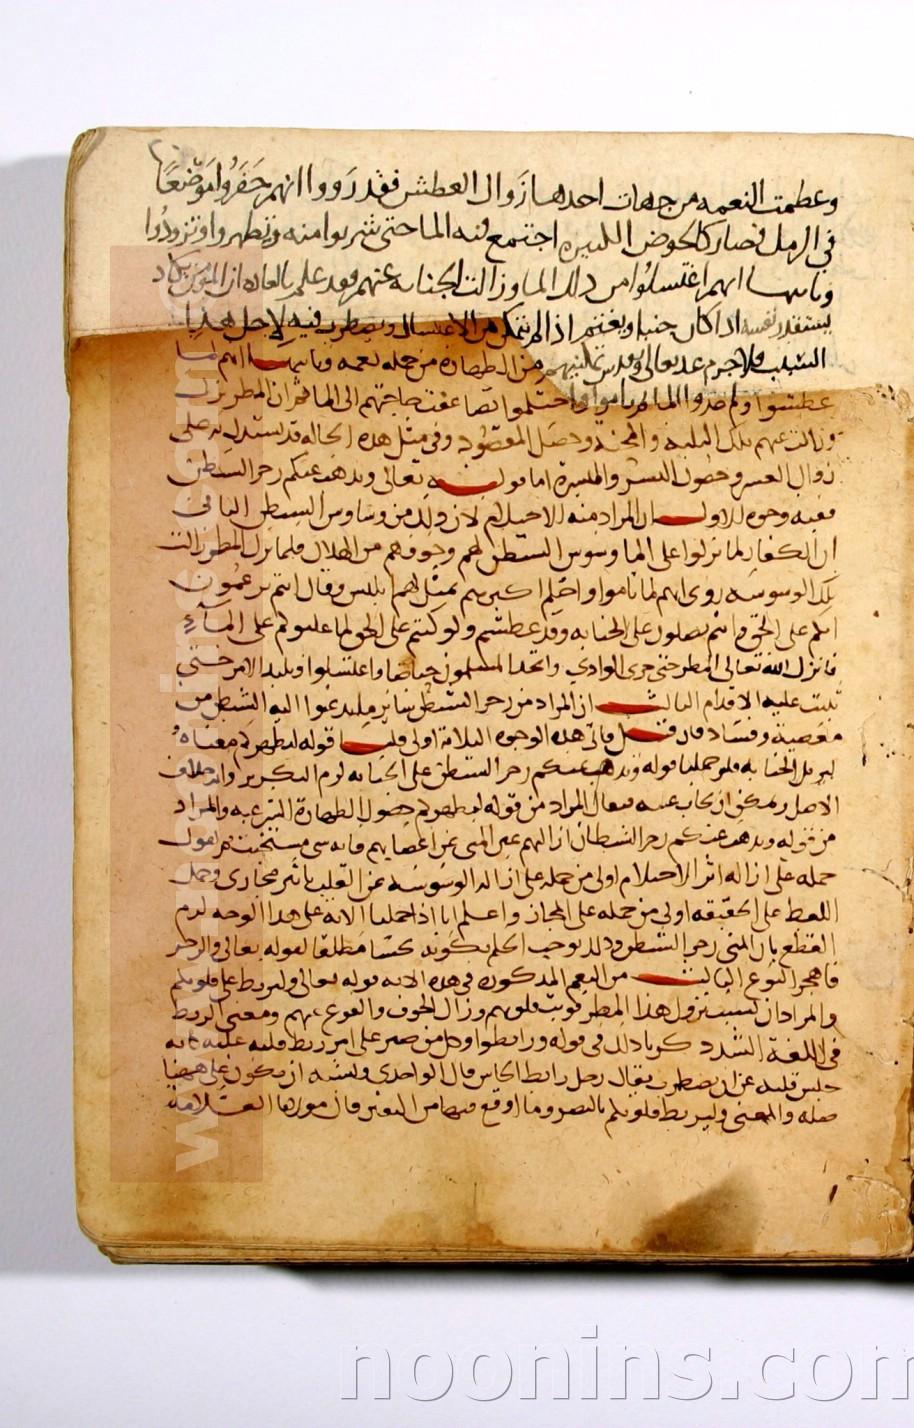 وعظمت النعمه من جهات احدها زوال العطش فقد رووا انهم حفروا موضعا
في الرمل فصار كالحوض الكبيره اجتمع فيه الما حتى شربوا منه وتطهروا وتزودوا
وثانيها انهم اغتسلوا من ذلك الما وزالت الجنابه عنهم وقد علم بالعاده ان المومن يكاد
يستقذر نفسه اذا كان جنبا ويغتم اذا لم يتمكن من الاغتسال ويضطرب فيه لاجل هذا
السبب فلا جرم عد تعالى وتقدس تمكينهم من الطهارة من جمله نعمه وثالثها انهم لما
عطشوا ولم يجدوا الما ثم ناموا واحتلموا تضاعفت حاجتهم الى الما ثم ان المطر نزل
وزالت عنهم تلك البليه والمحنه وحصل المقصود وفي مثل هذه الحاله قد يستدل به على
زوال العسر وحصول اليسر والمسرة اما قوله تعالى ويذهب عنكم رجز الشيطن
ففيه وجوه الاول ان المراد منه الاحتلام لان ذلك من وساوس الشيطن الثاني
ان الكفار لما نزلوا على الما وسوس الشيطن لهم وخوفهم من الهلاك فلما نزل المطر زالت
تلك الوسوسه روى انهم لما ناموا واحتلم اكثرهم تمثل لهم ابليس وقال انتم تزعمون
انكم على الحق وانتم تصلون على الجنابه وقد عطشتم ولو كنتم على الحق لما غلبوكم على الماء
فانزل الله تعالى المطر حتى جرى الوادي واتخذ المسلمون حياضا واغتسلوا وتلبد الارمل حتى
ثبتت عليه الاقدام الثالث ان المراد من رجز الشيطن سائر ما يدعوا اليه الشيطن من
معصية وفساد فان قيل فاي هذه الوجوه الثلاثة اولى قلنا قوله ليطهركم معناه
ليزيل الجنابه فلو حملنا قوله ويذهب عنكم رجز الشيطن على الجنابه لزم التكرير وانه خلاف
الاصل ويمكن ان يجاب عنه فيقال المراد من قوله ليطهركم حصول الطهارة الشرعيه والمراد
من قوله ويذهب عنكم رجز الشيطان ازاله عين المني عن اعضايهم فانه شي مستخبث ثم نقول
حمله على ازاله اثر الاحتلام اولى من حمله على ازاله الوسوسه عن القلب تاثير مجازى وحمل
اللفظ على الحقيقه اولى من حمله على المجاز واعلم انا اذا حملنا الايه على هذا الوجه لزم
القطع بان المني رجز الشيطن وذلك يوجب الحكم بكونه نجسا مطلقا لقوله تعالى والرجز
فاهجر النوع الثالث من النعم المذكوره في هذه الايه قوله تعالى وليربط على قلوبكم
والمراد ان بسبب نزول هذا المطر قويت قلوبهم وزال الخوف والفزع عنهم ومعنى الربط
في اللغة الشد كر ذلك في قوله ورابطوا وكل من صبر على امر ربط قلبه عليه كانه
حبس قلبه عن ان يضطرب يقال رجل رابط الجاش قال الواحدى ويشبه ان يكون على ههنا
صله والمعنى وليربط قلوبكم بالنصر وما اوقع فيها من اليقين فان موردها العلامة
www.noonins.com
noonins.com